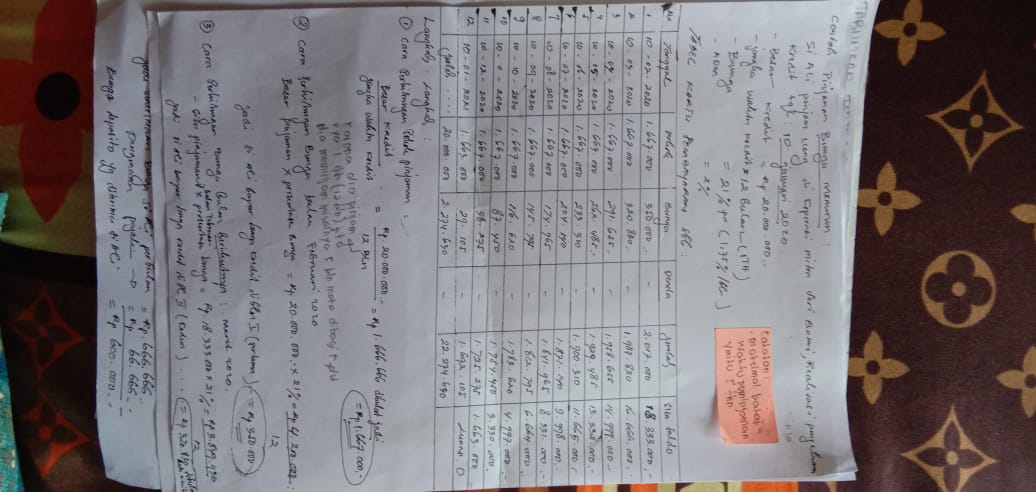 Contoh Pinjaman Bunga menurun :
Si Ali pinjam uang di Koperasi mitra
kredit tgl : 10 januari 2020
- Besar kredit = Rp 20.000.000.-
- jangka waktu kredit = 12 Bulan (1TH)
- Bunga = 21% pa (1,75% /bln)
- ADM = 2%
Catatan :
- maksimal batas
waktu peminjaman
yaitu 5 thn
TABEL KARTU PEMBAYARAN SBB :
No Tanggal Pokok Bunga Denda jumlah sisa saldo
1 10 - 02 - 2020 1.667.000 350.000.- - 2.017.000 18.333.000.-
2 10 - 03 - 2020 1.667.000 320.830.- - 1.987.830 16.666.000.-
3 10 - 04 - 2020 1.667.000 291.655.- - 14.999.000.-
4 10 - 05 - 2020 1.667.000 262.485.- - 1.929.485 13.332.000.-
5 10 - 06 - 2020 1.667.000 233.310 - 1.900.310 11.665.000.-
6 10 - 07 - 2020 1.667.000 204.140 - 1.871.140 9.998.000.-
7 10 - 08 - 2020 1.667.000 174.965 - 1.841.965 8.331.000.-
8 10 - 09 - 2020 1.667.000 145.795 - 1.812.795 6.664.000.-
9 10 - 10 - 2020 1.667.000 116.620 - 1.783.620 4.997.000.-
10 1.667.000 87.450 - 1.754.450 3.330.000.-
11 10 - 12 - 2020 1.667.000 58.275 - 1.725.275 1.663.000.-
12 10 - 01 - 2021 1.663.000 29.105 - 1.692.105 Lunas. 0
jumlah .... 20.000.000 2.274.630 - 22.274.630
Langkah - Langkah :
① Cara Perhitungan Pokok pinjaman :
Besar Kredit = Rp. 20.000.000.- = Rp 1.666.666 dibulat jadi
jangka waktu kredit 12 Bln
= Rp 1.667.000.-
karena dia pinjam
nya 1 thn (12 bln)
dia meminjam misalnya 5 bln maka dibagi 5
② Cara Perhitungan Bunga bulan Februari 2020
Besar pinjaman x prosentase Bunga = Rp. 20.000.000,- x 21% = Rp 4.200.000
12
jadi si Ali bayar bunga kredit diBln I (pertama) = Rp 350.000
③ Cara Perhitungan Bunga Bulan Berikutnya : maret 2020.
bulan Februari
- Sisa pinjaman x prosentase bunga = Rp. 18.333.000 x 21% = Rp 3.849.930
12
jadi si Ali bayar bunga kredit di Bln II (Kedua) .... = Rp 320.830
jadi penerimaan Bunga si Ali perbulan = Rp. 666.666.
pajak = Rp. 66.666.-
Bunga deposito yg diterima si Ali = Rp 600.000.-